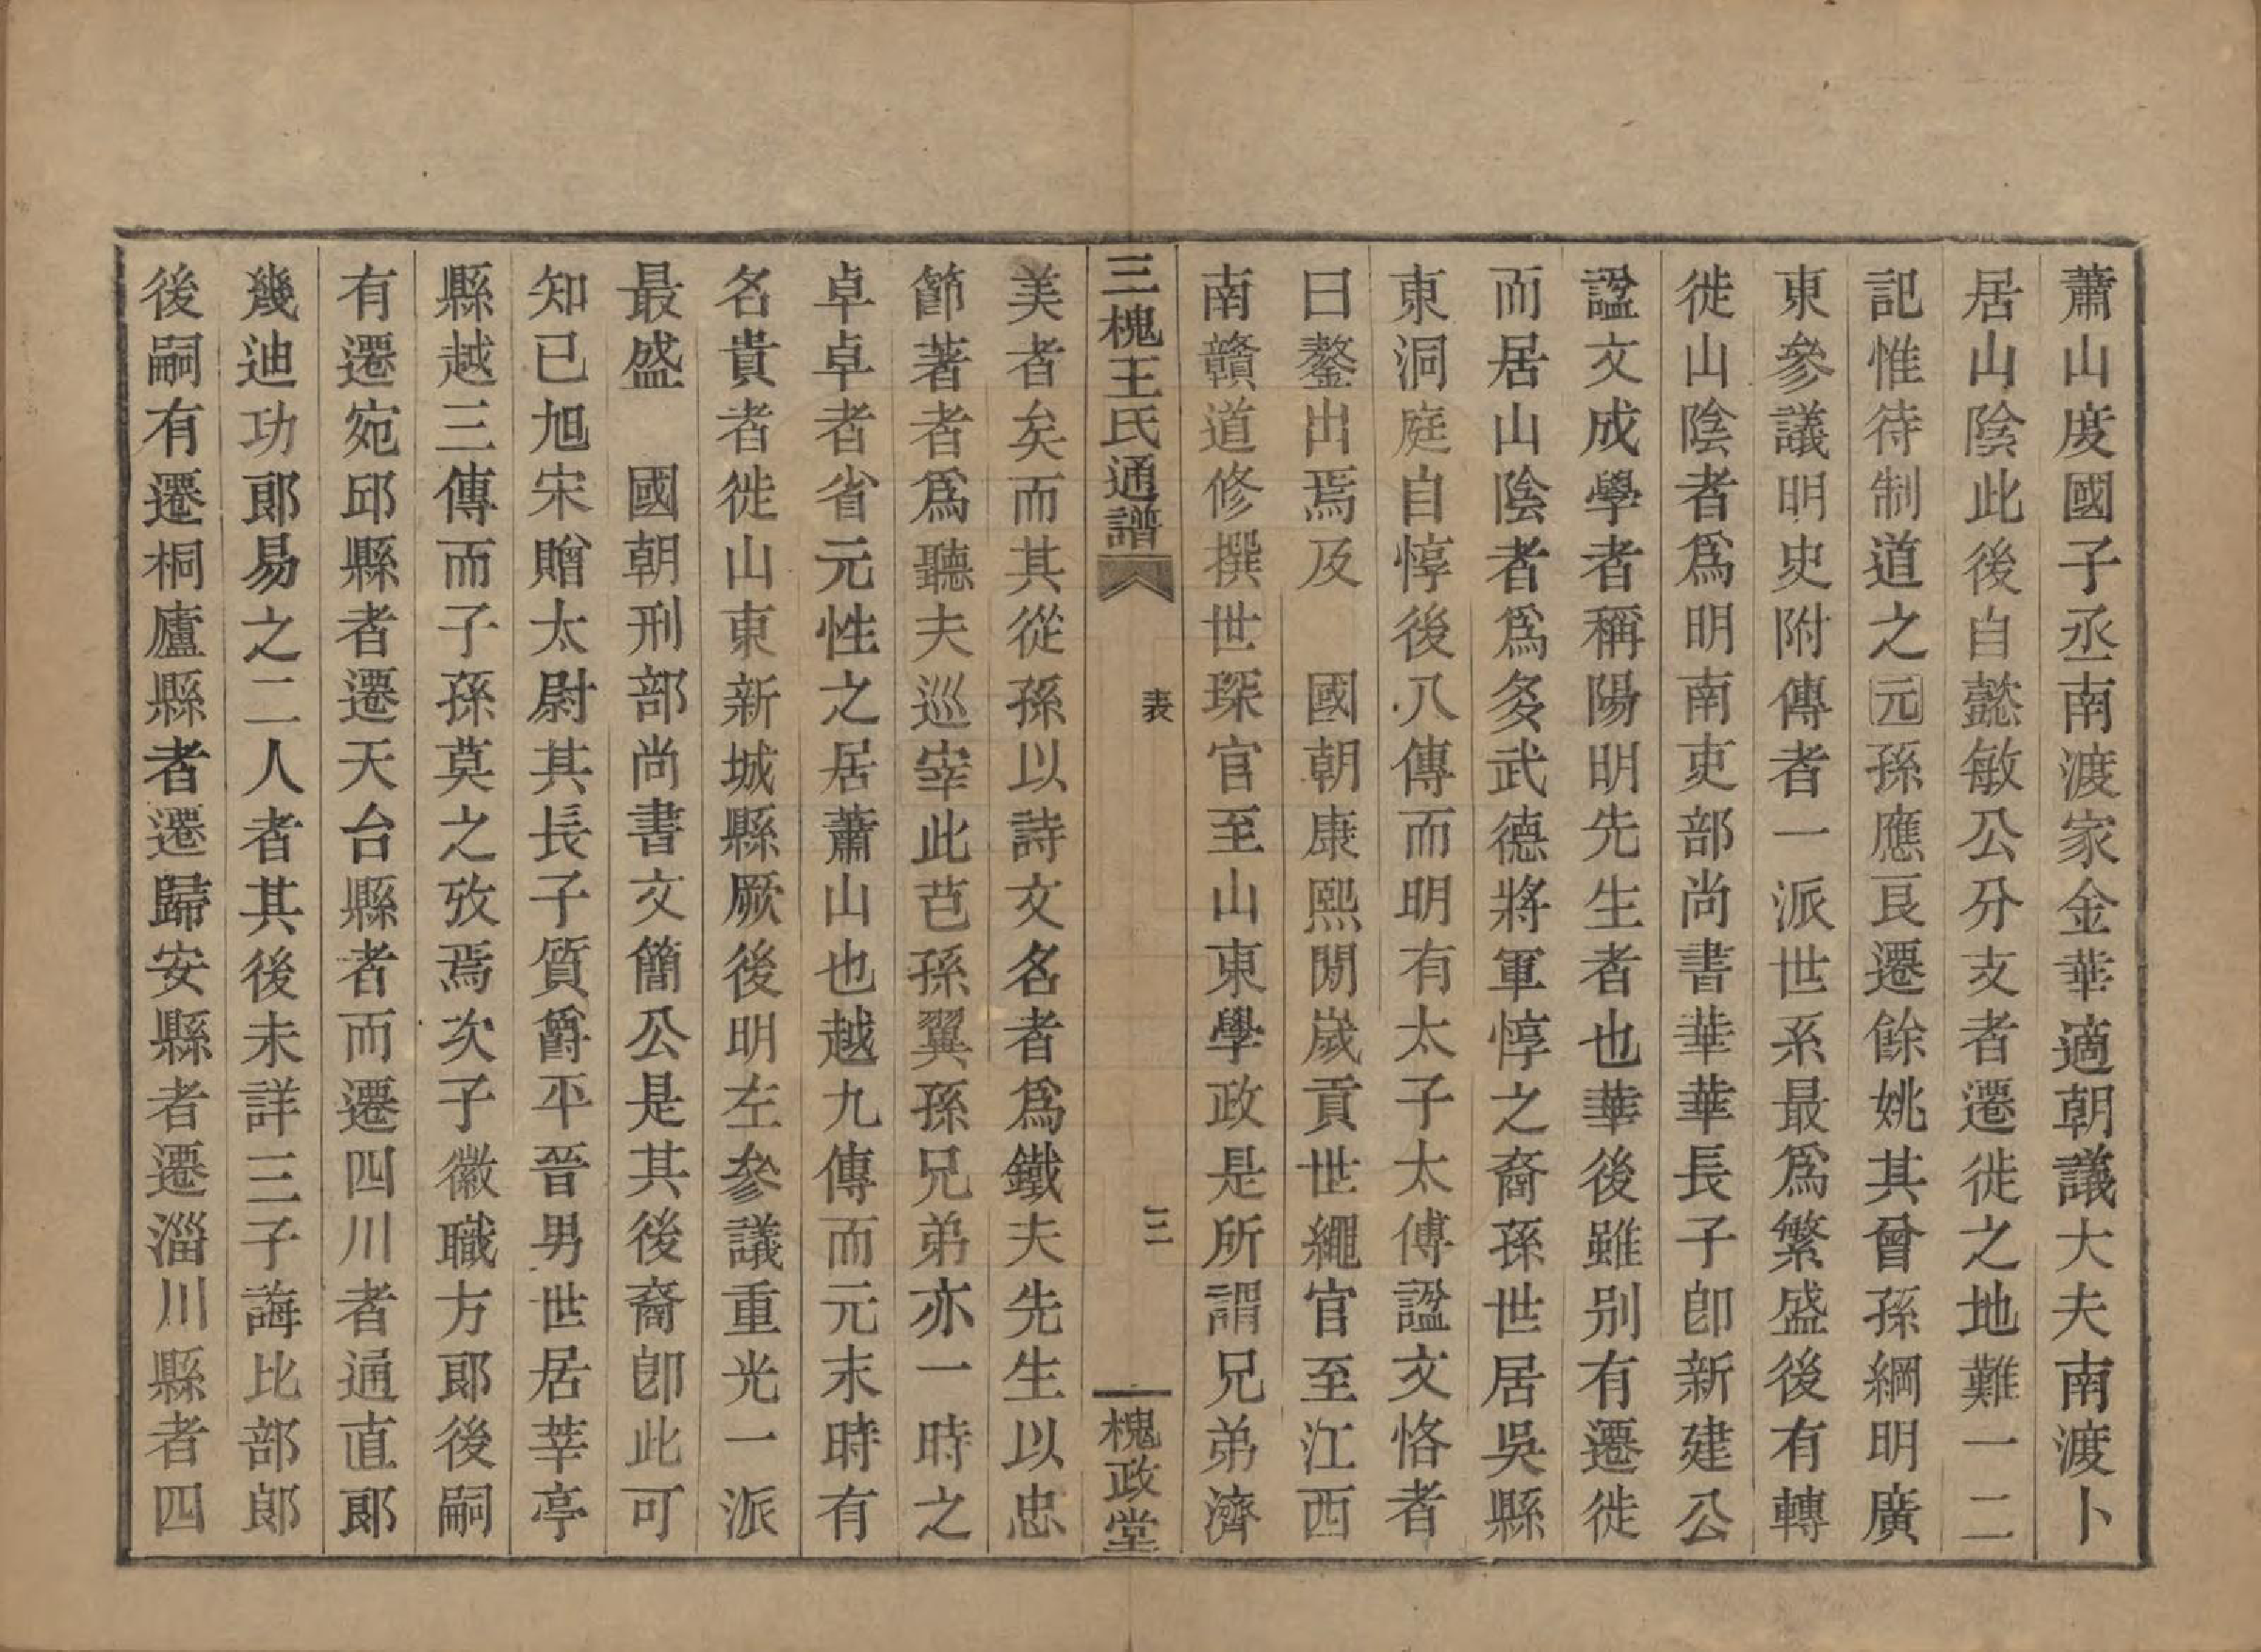 蕭山度國子丞南渡家金華適朝議大夫南渡卜
居山陰此後自懿敏公分支者遷徙之地難一二
記惟待制道之元孫應良遷餘姚其曾孫綱明廣
東參議明史附傳者一派世系最爲繁盛後有轉
徙山陰者爲明南吏部尚書華華長子卽新建公
諡文成學者稱陽明先生者也華後雖別有遷徙
而居山陰者爲多武德將軍惇之裔孫世居吳縣
東洞庭自惇後八傳而明有太子太傅諡文恪者
曰鏊出焉及　國朝康熙閒歲貢世繩官至江西
南贛道修撰世琛官至山東學政是所謂兄弟濟
三槐王氏通譜
表
三
槐政堂
美者矣而其從孫以詩文名者爲鐵夫先生以忠
節著者爲聽夫巡宰此芑孫翼孫兄弟亦一時之
卓卓者省元性之居蕭山也越九傳而元末時有
名貴者徙山東新城縣厥後明左參議重光一派
最盛　國朝刑部尚書文簡公是其後裔卽此可
知已旭宋贈太尉其長子質爵平晉男世居莘亭
縣越三傳而子孫莫之攷焉次子徽職方郎後嗣
有遷宛邱縣者遷天台縣者而遷四川者通直郎
幾迪功郎易之二人者其後未詳三子誨比部郎
後嗣有遷桐廬縣者遷歸安縣者遷淄川縣者四